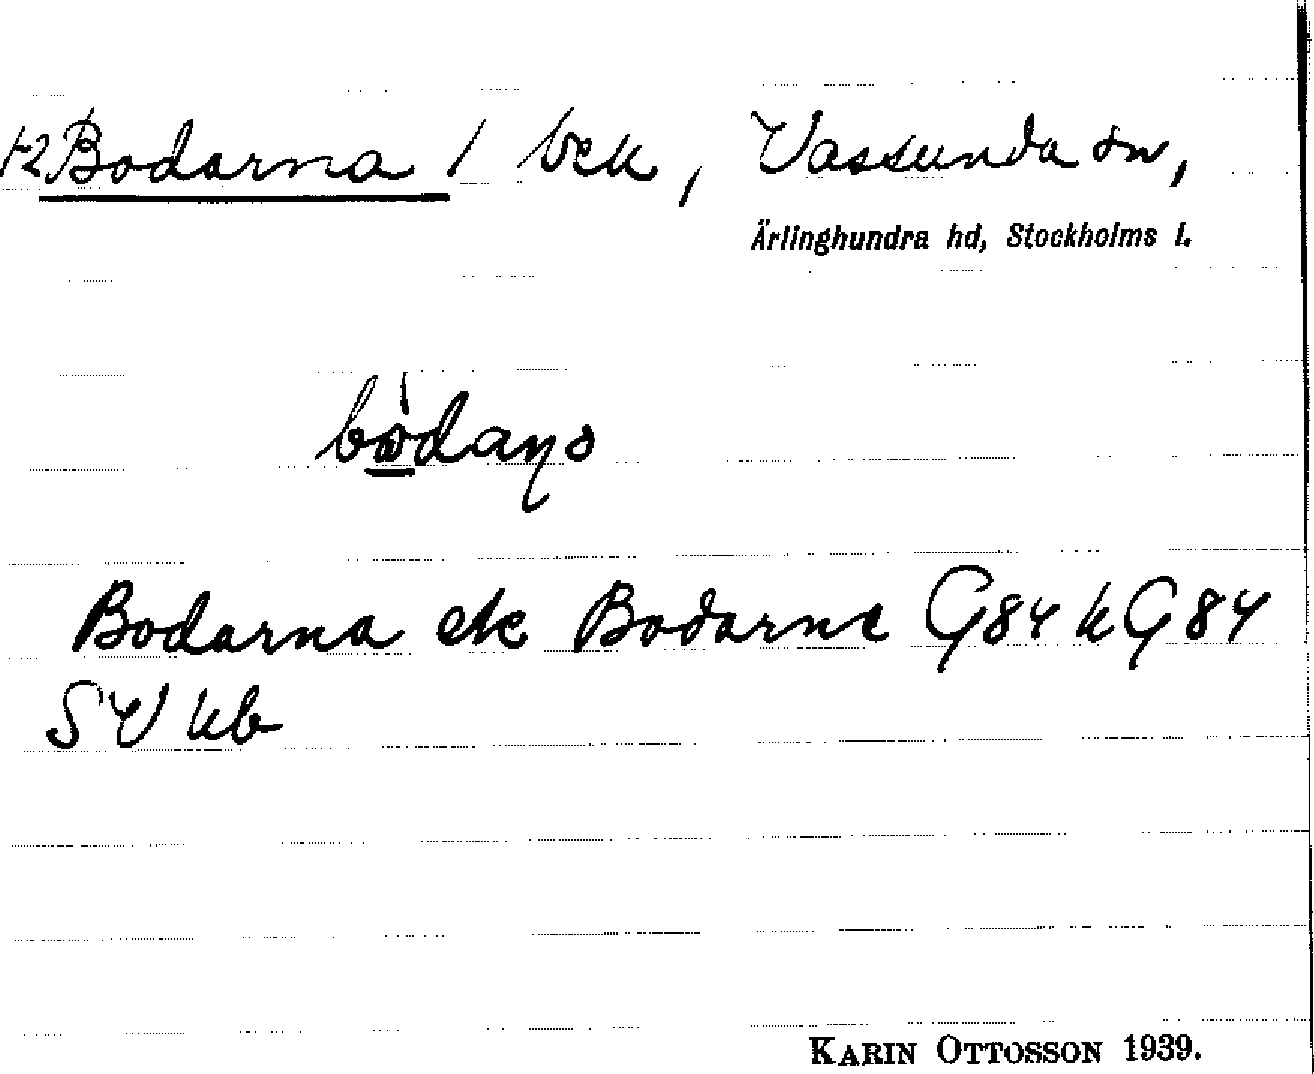 +2 Bodarna / bck, Vassunda sn,
Ärlinghundra hd, Stockholms l.
Bodarna ek Bodarne G84 k G84
SV kb
KARIN OTTOSSON 1939.